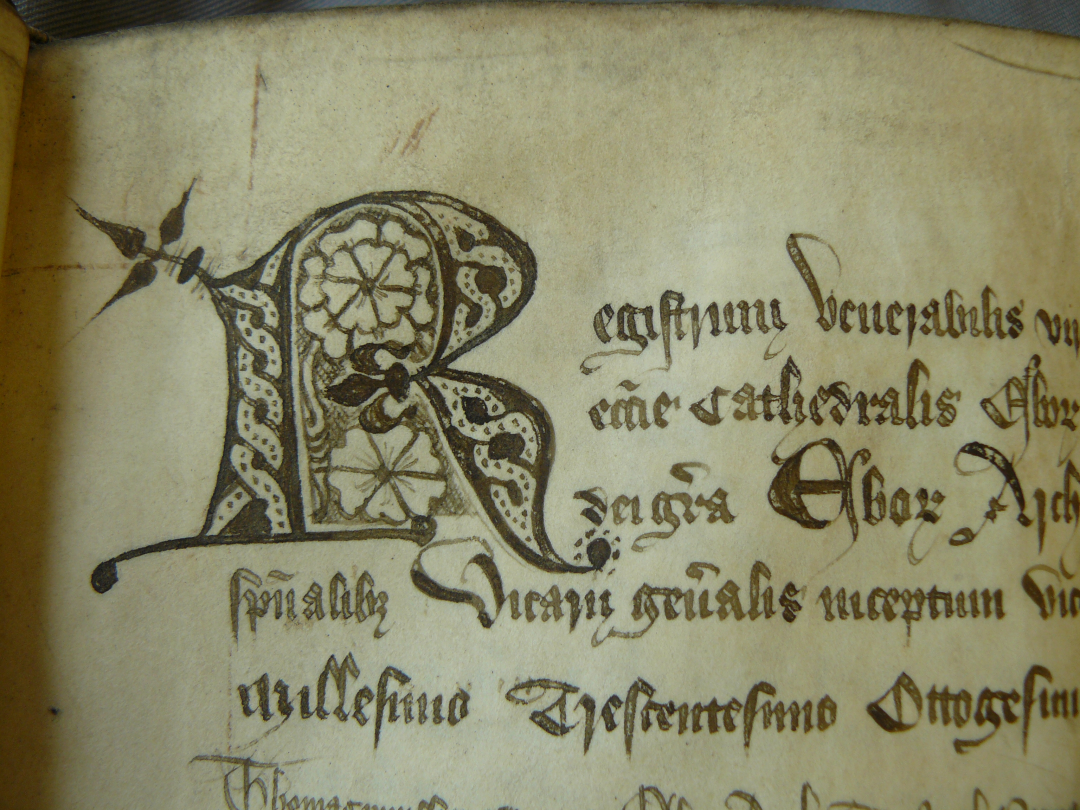 Registrum venerabilis
eccie Cathedralis Ebor
dei gra Ebor Arch
spualibz Vicarii genalis inceptum
millesimo Trescentesimo Ottogesim